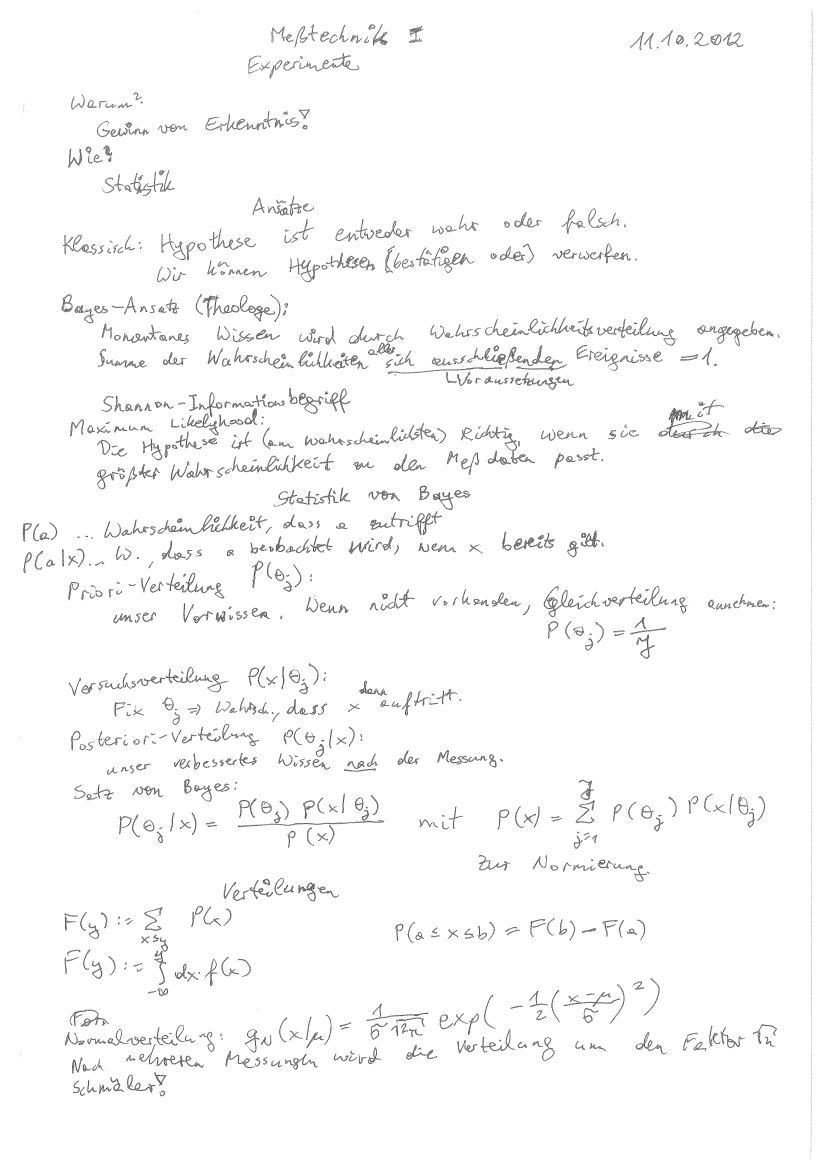 Meßtechnik I 11.10.2012
Experimente
Warum?
Gewinn von Erkenntnis!
Wie?
Statistik
Ansätze
Klassisch: Hypothese ist entweder wahr oder falsch.
Wir können Hypothesen (bestätigen oder) verwerfen.
Bayes-Ansatz (Theologe):
Momentanes Wissen wird durch Wahrscheinlichkeitsverteilung angegeben.
Summe der Wahrscheinlichkeiten aller sich ausschließenden Ereignisse = 1.
Voraussetzungen
Shannon-Informationsbegriff
Maximum Likelyhood:
Die Hypothese ist (am wahrscheinlichsten) Richtig, wenn sie durch die mit
größter Wahrscheinlichkeit zu den Meßdaten passt.
Statistik von Bayes
P(a) ... Wahrscheinlichkeit, dass a zutrifft
P(a|x)... W., dass a beobachtet wird, wenn x bereits gilt.
Priori-Verteilung P(θ_j):
unser Vorwissen. Wenn nicht vorhanden, Gleichverteilung annehmen:
P(θ_j) = 1/J
Versuchsverteilung P(x|θ_j):
Fix θ_j ⇒ Wahrsch., dass x dann auftritt.
Posteriori-Verteilung P(θ_j|x):
unser verbessertes Wissen nach der Messung.
Satz von Bayes:
P(θ_j|x) = P(θ_j) P(x|θ_j) / P(x) mit P(x) = Σ_{j=1}^{J} P(θ_j) P(x|θ_j)
zur Normierung.
Verteilungen
F(y) := Σ_{x≤y} P(x) P(a ≤ x ≤ b) = F(b) - F(a)
F(y) := ∫_{-∞}^{y} dx·f(x)
Normalverteilung: g_N(x|μ) = 1/(σ √2π) exp(-1/2 ((x-μ)/σ)^2)
Nach mehreren Messungen wird die Verteilung um den Faktor √n
schmäler!